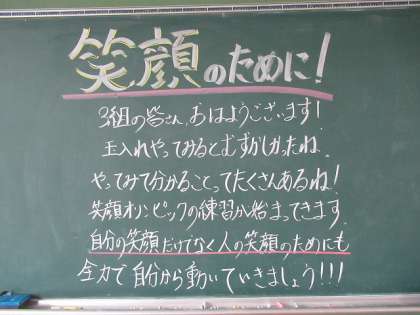 笑顔のために!
3組の皆さん、おはようございます!
玉入れやってみるとむずかしかったね。
やってみて分かることってたくさんあるね!
笑顔オリンピックの練習が始まってきます。
自分の笑顔だけでなく人の笑顔のためにも
全力で自分から動いていきましょう!!!